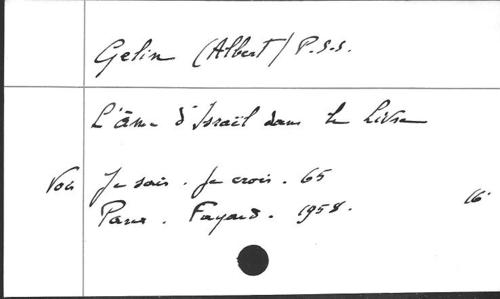 Gelin (Albert) P.S.S.
L'âme d'Israël dans le Livre
Voir Je sais. Je crois. 65
Paris. Fayard. 1958. 16°